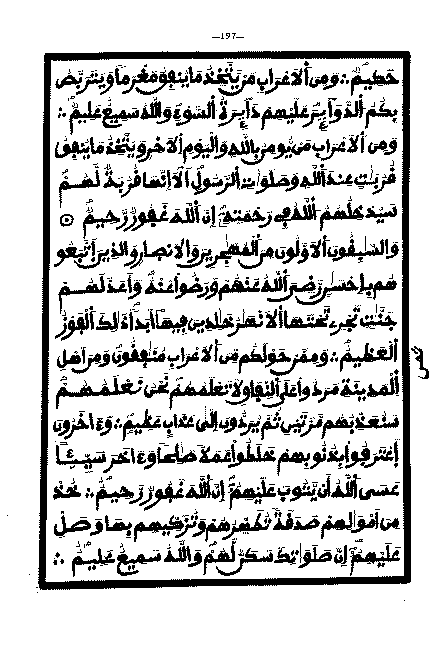 —197—
حَكِيمٌ ∴ وَمِنَ ألاَعْرَابِ مَنْ يَّتَّخِذُ مَا يُنفِقُ مَغْرَماً وَيَتَرَبَّصُ
بِكُمُ ألدَّوَآيِرَ عَلَيْهِمْ دَآيِرَةُ ألسَّوْءِ وَاللَّهُ سَمِيعٌ عَلِيمٌ ∴
وَمِنَ ألاَعْرَابِ مَنْ يُّومِنُ بِاللَّهِ وَالْيَوْمِ ألاَخِرِ وَيَتَّخِذُ مَا يُنفِقُ
قُرُبَٰتٍ عِندَ أللَّهِ وَصَلَوَٰتِ ألرَّسُولِ أَلآ إِنَّهَا قُرُبَةٌ لَّهُمْ
سَيُدْخِلُهُمُ أللَّهُ فِى رَحْمَتِهِ إِنَّ أللَّهَ غَفُورٌ رَّحِيمٌ
وَالسَّٰبِقُونَ ألاَوَّلُونَ مِنَ ألْمُهَٰجِرِينَ وَالاَنصَارِ وَالذِينَ اَتَّبَعُو
هُم بِإِحْسَٰنٍ رَّضِىَ أللَّهُ عَنْهُمْ وَرَضُواْ عَنْهُ وَأَعَدَّ لَهُمْ
جَنَّٰتٍ تَجْرِى تَحْتَهَا ألاَنْهَٰرُ خَٰلِدِينَ فِيهَا أَبَداً ذَٰلِكَ ألْفَوْزُ
ألْعَظِيمُ ∴ وَمِمَّنْ حَوْلَكُم مِّنَ ألاَعْرَابِ مُنَٰفِقُونَ وَمِنَ اَهْلِ
ألْمَدِينَةِ مَرَدُواْ عَلَى ألنِّفَاقِ لاَ تَعْلَمُهُمْ نَحْنُ نَعْلَمُهُمْ
سَنُعَذِّبُهُم مَّرَّتَيْنِ ثُمَّ يُرَدُّونَ إِلَىٰ عَذَابٍ عَظِيمٍ ∴ وَءَاخَرُونَ
إَعْتَرَفُواْ بِذُنُوبِهِمْ خَلَطُواْ عَمَلاً صَٰلِحاً وَءَاخَرَ سَيِّئاً
عَسَى أللَّهُ أَنْ يَّتُوبَ عَلَيْهِمْ إِنَّ أللَّهَ غَفُورٌ رَّحِيمٌ ∴ خُذْ
مِنَ اَمْوَٰلِهِمْ صَدَقَةً تُطَهِّرُهُمْ وَتُزَكِّيهِم بِهَا وَصَلِّ
عَلَيْهِمْ إِنَّ صَلَوَٰتِكَ سَكَنٌ لَّهُمْ وَاللَّهُ سَمِيعٌ عَلِيمٌ ∴